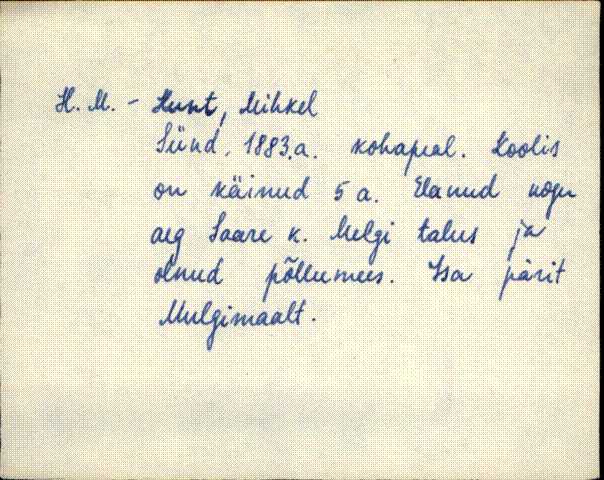 H. M. – Hunt, Mihkel
Sünd. 1883.a. kohapeal. Koolis
on käinud 5 a. Elanud kogu
aeg Saare k. Melgi talus ja
olnud põllumees. Isa pärit
Mulgimaalt.